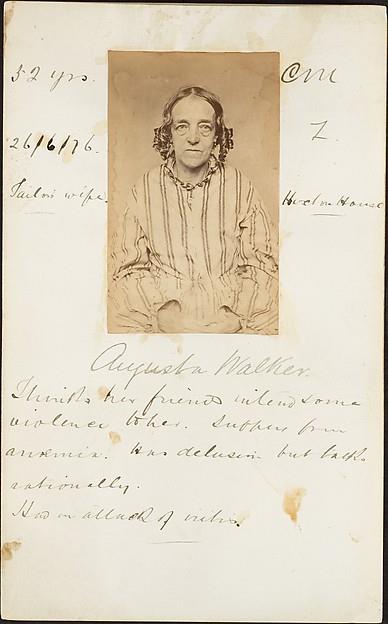 52 yrs.
CM
26/6/76.
Z
Tailor's wife.
Hoxton House
Augusta Walker.
Thinks her friends intend some
violence to her. Suffers from
anæmia. Has delusion but talks
rationally.
Had an attack of